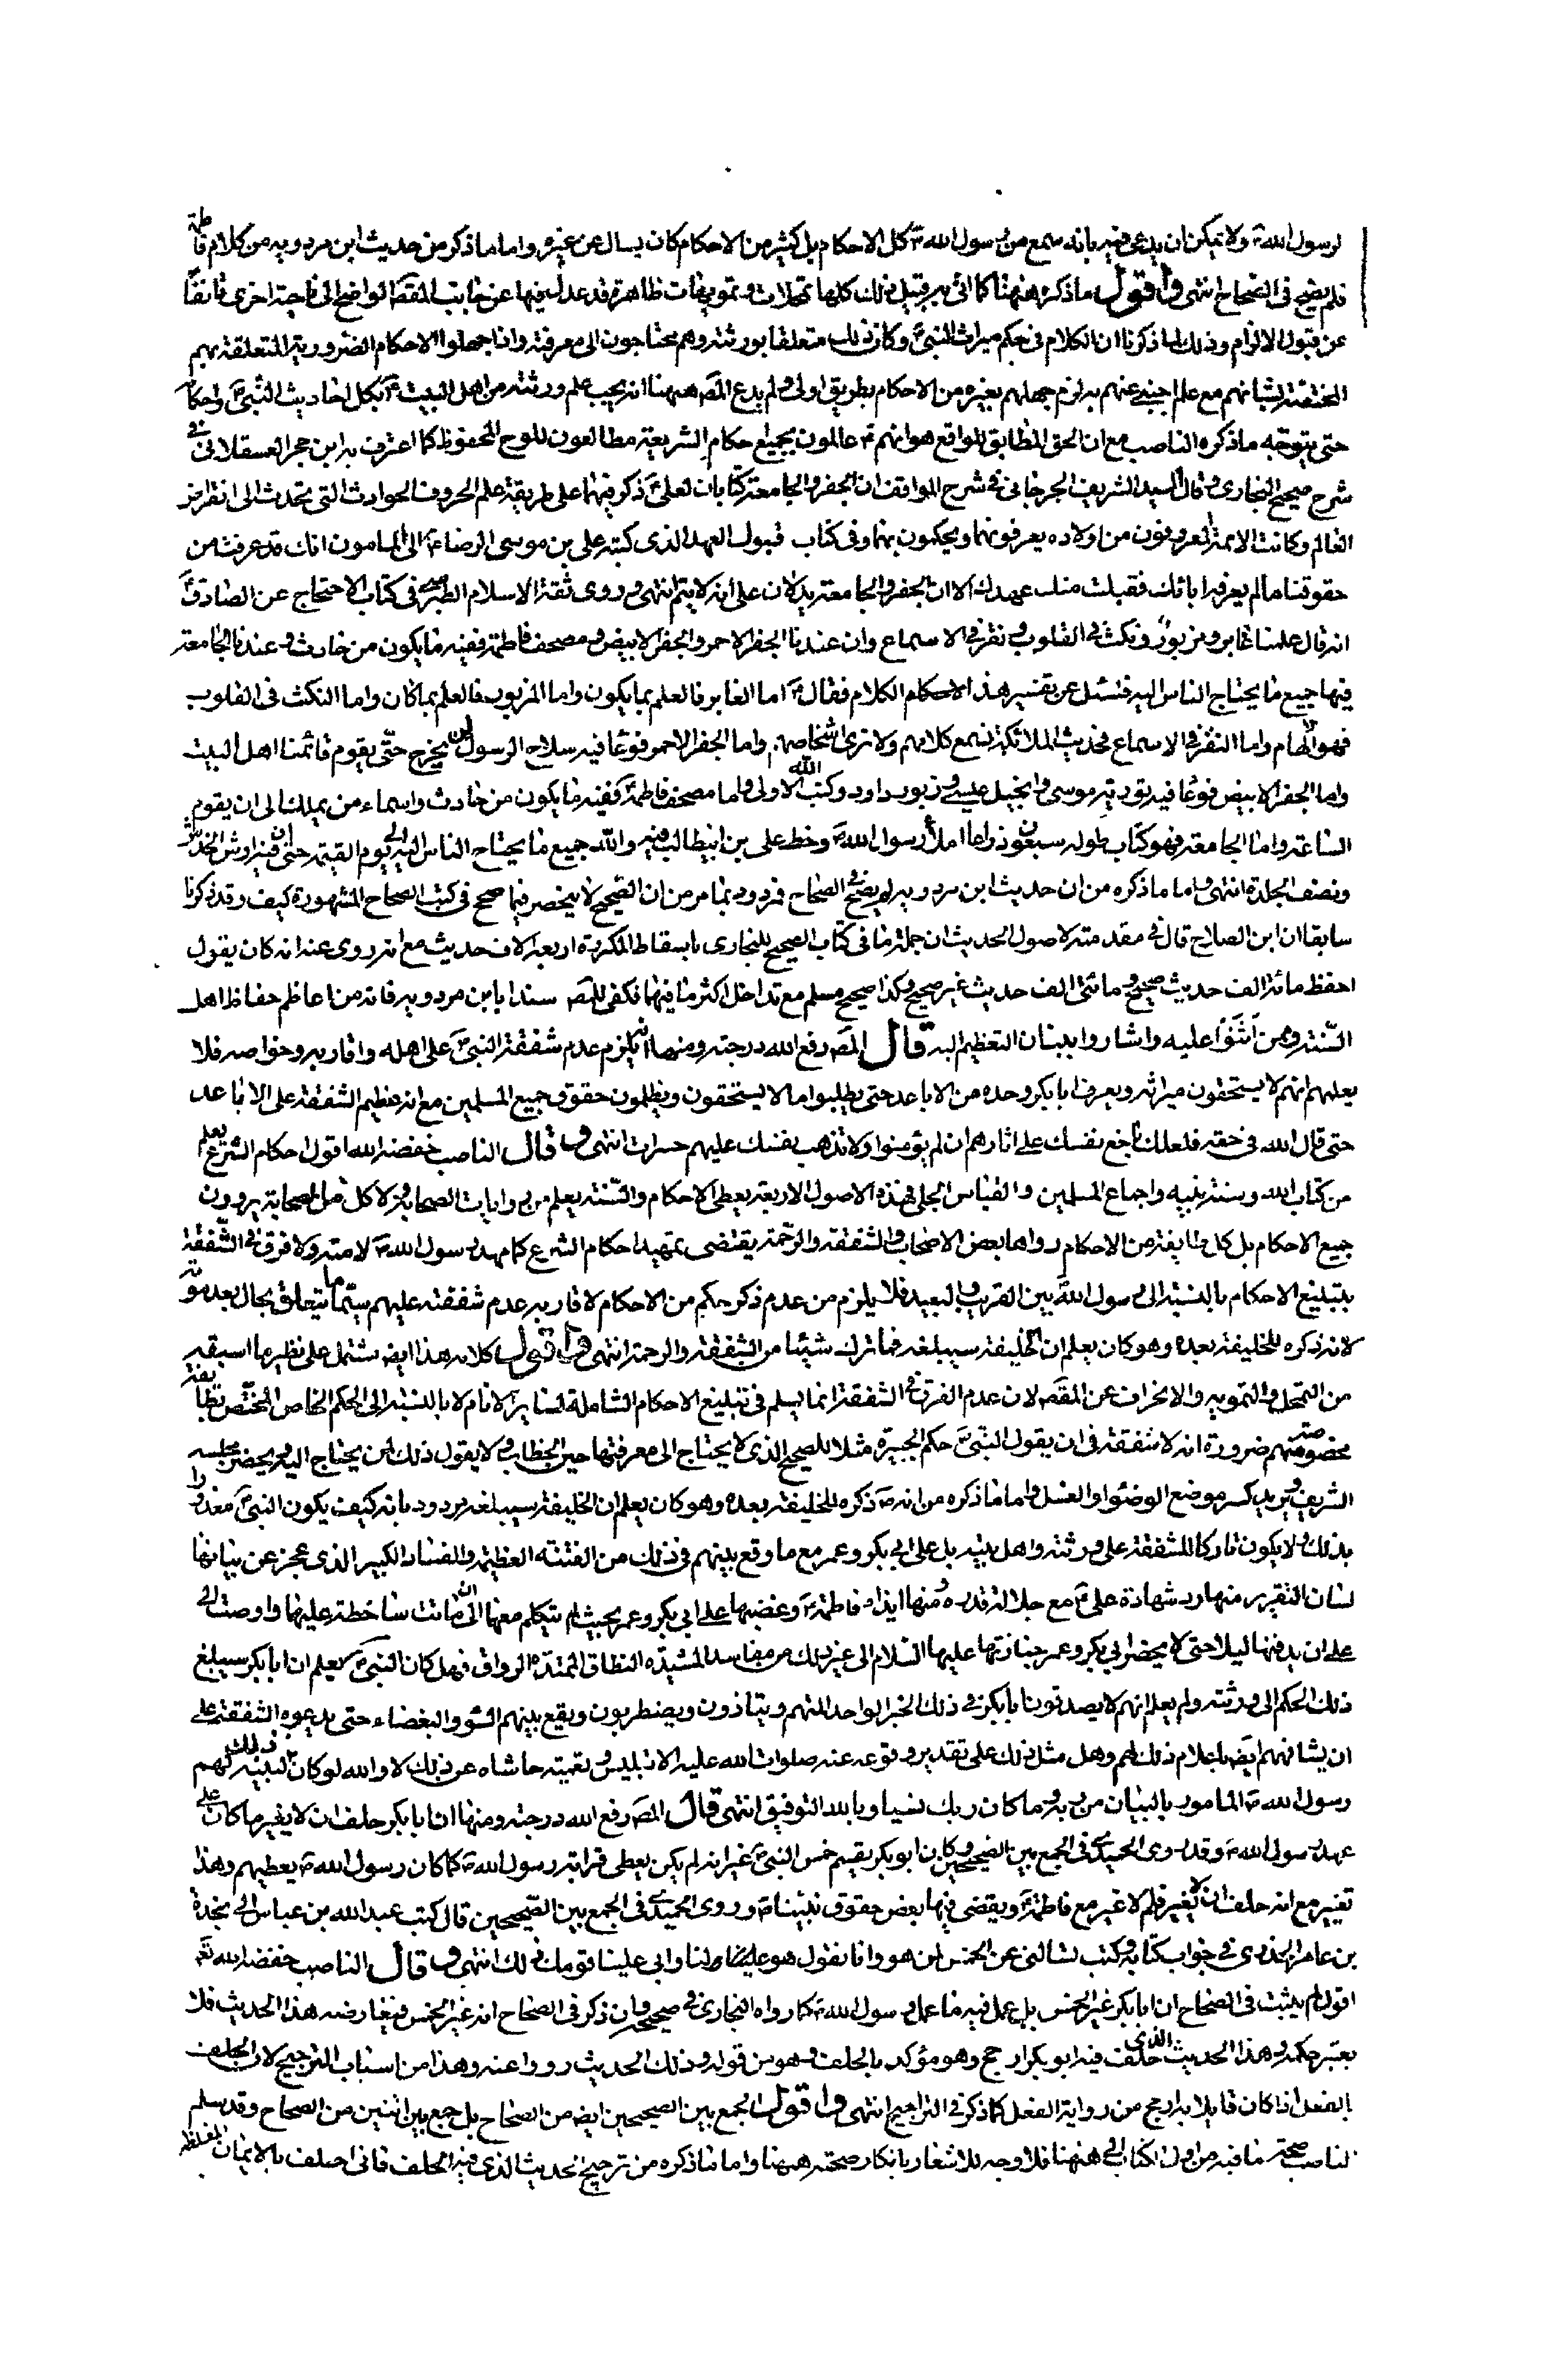 لرسول الله ص ولا يمكن ان يدعى فيه بانه سمع من رسول الله ص كل الاحكام بل كثير من الاحكام كان يسال عن غيره واما ما ذكر من حديث ابن مردويه من كلام فاطمة
فلم يصح في الصحاح انتهى واقول ما ذكره ههنا كما اتى به قبيل ذلك كلها تمحلات وتمويهات ظاهرة قد عدل فيها عن جانب المقصد الواضح الى ناحية اخرى فانفًا
عن قبول الالزام وذلك لما ذكرنا ان الكلام في حكم ميراث النبي ص وكان ذلك متعلقا بورثته وهم محتاجون الى معرفته واذا جهلوا الاحكام الضرورية المتعلقة بهم
المختصة بشانهم مع علم اجنبي عنهم به لزم جهلهم بغيره من الاحكام بطريق اولى ولم يدع المص ههنا انه يجب علم ورثته من اهل البيت ع بكل احاديث النبي ص واحكام
حتى يتوجه ما ذكره الناصب مع ان الحق المطابق للواقع هو انهم ع عالمون بجميع احكام الشريعة مطالعون للوح المحفوظ كما اعترف به ابن حجر العسقلاني في
شرح صحيح البخاري وقال السيد الشريف الجرجاني في شرح المواقف ان الجفر والجامعة كتابان لعلي ع ذكر فيهما على طريقة علم الحروف الحوادث التي تحدث الى انقراض
العالم وكانت الائمة المعروفون من اولاده يعرفونهما ويحكمون بهما وفي كتاب قبول العهد الذي كتبه علي بن موسى الرضا ع الى المامون انك قد عرفت من
حقوقنا ما لم يعرفه ابائك فقبلت منك عهدك الا ان الجفر والجامعة يدلان على انه لا يتم انتهى وروى ثقة الاسلام الطبرسي في كتاب الاحتجاج عن الصادق ع
انه قال علمنا غابر ومزبور ونكث في القلوب ونقر في الاسماع وان عندنا الجفر الاحمر والجفر الابيض ومصحف فاطمة ففيه ما يكون من حادث وعندنا الجامعة
فيها جميع ما يحتاج الناس اليه فسئل عن تفسير هذا الاحكام الكلام فقال ع اما الغابر فالعلم بما يكون واما المزبور فالعلم بما كان واما النكث في القلوب
فهو الالهام واما النقر في الاسماع فحديث الملائكة نسمع كلامهم ولا نرى اشخاصهم واما الجفر الاحمر فوعا فيه سلاح الرسول لن يخرج حتى يقوم قائمنا اهل البيت
واما الجفر الابيض فوعا فيه تورية موسى وانجيل عيسى وزبور داود وكتب الله الاولى واما مصحف فاطمة ع ففيه ما يكون من حادث واسماء من يملك الى ان يقوم
الساعة واما الجامعة فهو كتاب طوله سبعون ذراعا املاء رسول الله ص وخط علي بن ابيطالب فيه والله جميع ما يحتاج الناس اليه الى يوم القيمة حتى ان فيه ارش الخدش
ونصف الجلدة انتهى واما ما ذكره من ان حديث ابن مردويه لم يصح في الصحاح فمردود بما مر من ان الصحيح لا ينحصر فيما صح في كتب الصحاح المشهورة كيف وقد ذكرنا
سابقا ان ابن الصلاح قال في مقدمته لاصول الحديث ان جملة ما في كتاب الصحيح للبخاري باسقاط المكررة اربعة الاف حديث مع انه روى عنه انه كان يقول
احفظ مائة الف حديث صحيح ومائتي الف حديث غير صحيح وكذا صحيح مسلم مع تداخل اكثر ما فيها فكفى للمص سندا بابن مردويه فانه من اعاظم حفاظ اهل
السنة وممن اثنوا عليه واشاروا ببنان التعظيم اليه قال المص رفع الله درجته ومنها انه يلزم عدم شفقة النبي ص على اهله واقاربه وخواصه فلا
يعلمهم انهم لا يستحقون ميراثه ويعرف ابا بكر وحده من الاباعد حتى يطلبوا ما لا يستحقون ويظلمون حقوق جميع المسلمين مع انه عظيم الشفقة على الاباعد
حتى قال الله في حقه فلعلك باخع نفسك على اثارهم ان لم يؤمنوا ولا تذهب نفسك عليهم حسرات انتهى وقال الناصب خفضه الله اقول احكام الشرع يعلم
من كتاب الله وسنة نبيه واجماع المسلمين والقياس الجلي فهذه الاصول الاربعة يعطي الاحكام والسنة يعلم من روايات الصحابة ولا كل من الصحابة يروون
جميع الاحكام بل كل طايفة من الاحكام رواها بعض الاصحاب والشفقة والرحمة يقتضى تمهيد احكام الشرع كما مهد رسول الله ص لامته ولا فرق في الشفقة
بتبليغ الاحكام بالنسبة الى رسول الله ص بين القريب والبعيد فلا يلزم من عدم ذكر حكم من الاحكام لاقاربه عدم شفقته عليهم سيما ما يتعلق بحال بعد موته
لانه ذكره للخليفة بعده وهو كان يعلم ان الخليفة سيبلغه فما ترك شيئا من الشفقة والرحمة انتهى واقول كلامه هذا ايض مشتمل على نظير ما اسبقه
من التمحل والتمويه والانحراف عن المقصد لان عدم الفرق في الشفقة انما يسلم في تبليغ الاحكام الشاملة لساير الانام لا بالنسبة الى الحكم الخاص المختص بطايفة
مخصوصة منهم ضرورة انه لا شفقة في ان يقول النبي ص حكم الجبيرة مثلا للصحيح الذي لا يحتاج الى معرفتها حين الخطاب ولا يقول ذلك لمن يحتاج اليه ويحضر مجلسه
الشريف ويريد كسر موضع الوضوء او الغسل واما ما ذكره من انه ص ذكره للخليفة بعده وهو كان يعلم ان الخليفة سيبلغه مردود بانه كيف يكون النبي ص معذورا
بذلك ولا يكون تاركا للشفقة على ورثته واهل بيته بل على ابي بكر وعمر مع ما وقع بينهم في ذلك من الفتنة العظيمة والفساد الكبير الذي عجز عن بيانها
لسان التقرير منها رد شهادة علي ع مع جلالة قدره ومنها ايذاء فاطمة ع وغضبها على ابي بكر وعمر بحيث لم يتكلم معهما الى ان ماتت ساخطة عليهما واوصت الى
علي ان يدفنها ليلا حتى لا يحضر ابي بكر وعمر جنازتها عليها السلام الى غير ذلك من مفاسد المشيدة النطاق الممتدة الرواق فهل كان النبي ص يعلم ان ابا بكر سيبلغ
ذلك الحكم الى ورثته ولم يعلم انهم لا يصدقون ابا بكر في ذلك الخبر الواحد المتهم ويتاذون ويضطربون ويقع بينهم السوء والبغضاء حتى يدعوه الشفقة على
ان يشافههم ايض باعلام ذلك لهم وهل مثل ذلك على تقدير وقوعه عنه صلوات الله عليه الا تبليس وتعمية حاشاه عن ذلك لا والله لو كان ذلك لبينه لهم
رسول الله ص المامور بالبيان من ربه وما كان ربك نسيا وبالله التوفيق انتهى قال المص رفع الله درجته ومنها ان ابا بكر حلف ان لا يغير ما كان على
عهد رسول الله ص وقد روى الحميدي في الجمع بين الصحيحين كان ابو بكر يقسم خمس النبي ص غير انه لم يكن يعطى قرابة رسول الله ص كما كان رسول الله ص يعطيهم وهذا
تغيير مع انه حلف ان لا يغير فلم لا غير مع فاطمة ع ويقضى فيها بعض حقوق نبينا ص وروى الحميدي في الجمع بين الصحيحين قال كتب عبد الله بن عباس الى نجدة
بن عامر الحروري في جواب كتابه وكتب تسالني عن الخمس لمن هو وانا نقول هو لنا وابى علينا قومك ذلك انتهى وقال الناصب خفضه الله تعالى
اقول لم يثبت في الصحاح ان ابا بكر غير الخمس بل عمل فيه ما عمل رسول الله ص كما رواه البخاري في صحيحه وان ذكر في الصحاح انه غير الخمس فيعارضه هذا الحديث فلا
يعتبر حكمه وهذا الحديث الذي حلف فيه ابو بكر ارجح وهو مؤكد بالحلف وهو من قوله وذلك الحديث رووا عنه وهذا من اسباب الترجيح لان الحلف
بالفعل اذا كان قايلا به ارجح من رواية الفعل كما ذكر في التراجيح انتهى واقول الجمع بين الصحيحين ايض من الصحاح بل جمع بين اثنين من الصحاح وقد سلم
الناصب صحة ما فيه من اول الكتاب الى ههنا فلا وجه للاشعار بانكار صحته ههنا واما ما ذكره من ترجيح الحديث الذي فيه الحلف فاني احلف بالايمان المغلظة